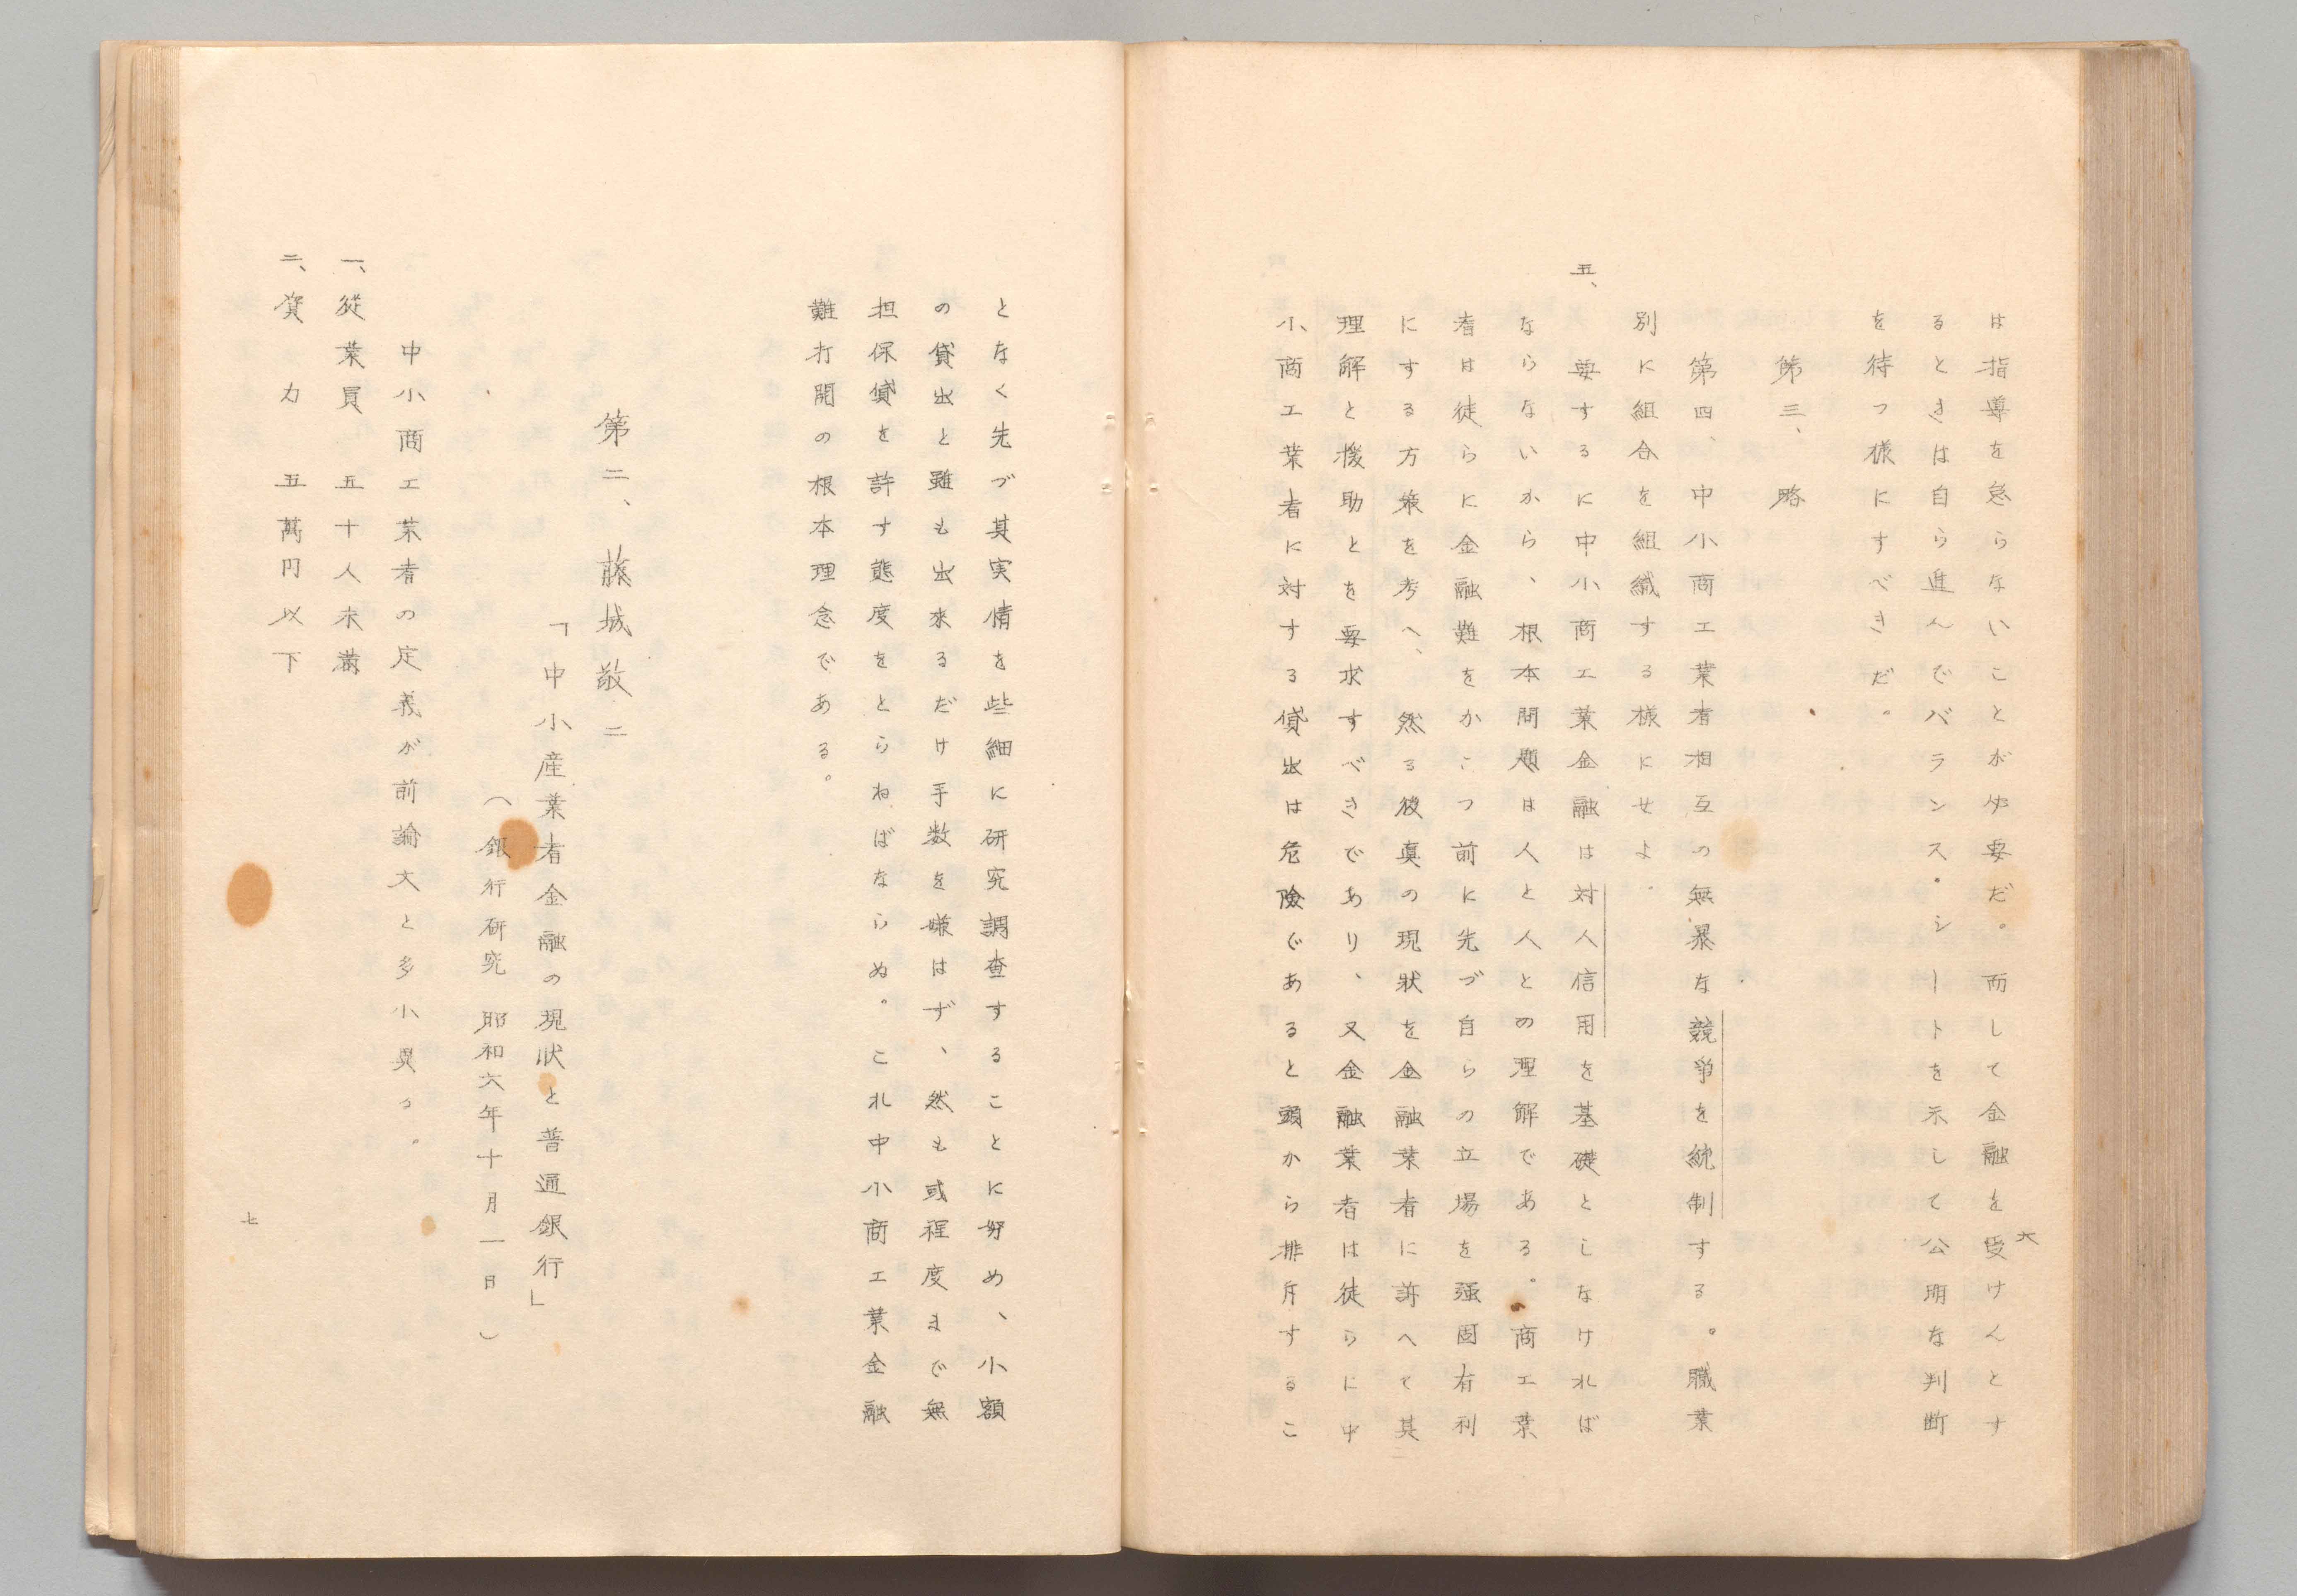 は指導を怠らないことが必要だ。而して金融を受けんとす
るときは自ら進んでバランス・シートを示して公明な判断
を待つ様にすべきだ。
第三、略
第四、中小商工業者相互の無暴な競争を統制する。職業
別に組合を組織する様にせよ.
五、要するに中小商工業金融は対人信用を基礎としなければ
ならないから、根本問題は人と人との理解である。商工業
者は徒らに金融難をかこつ前に先づ自らの立場を强固有利
にする方策を考へ、然る後真の現狀を金融業者に訴へて其
理解と援助とを要求すべきであり、又金融業者は徒らに中
小商工業者に対する貸出は危険であると頭から排斥するこ
六
となく先づ其実情を些細に研究調査することに努め、小額
の貸出と雖も出来るだけ手数を嫌はず、然も或程度まで無
担保貸を許す態度をとらねばならぬ。これ中小商工業金融
難打開の根本理念である。
第二、藤城敬二
「中小産業者金融の現狀と普通銀行」
（銀行研究 昭和六年十月一日）
中小商工業者の定義が前論文と多小異る。
一、從業員 五十人未満
二、資力 五萬円以下
七